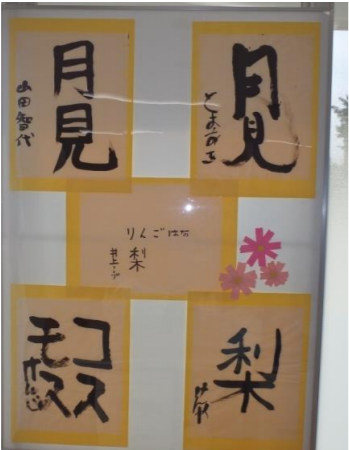 月見
山田智代
月見
りんご
梨
井上
コス
モス
梨